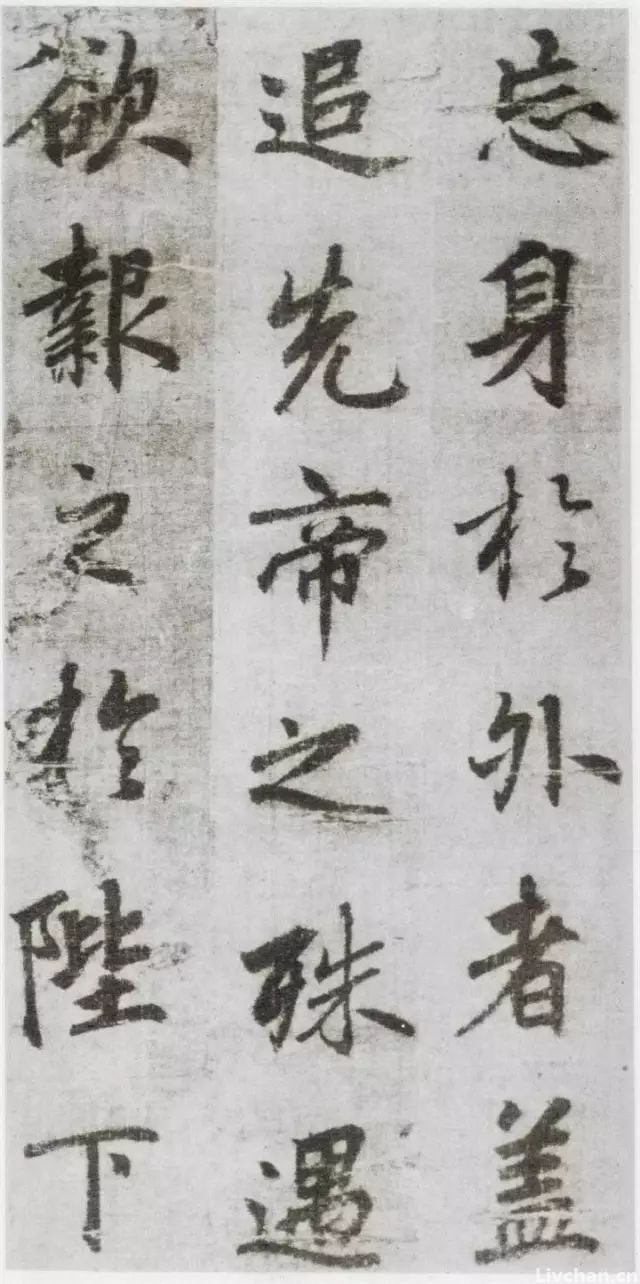 忘身於外者盖
追先帝之殊遇
欲報之於陛下
Livchan.cn